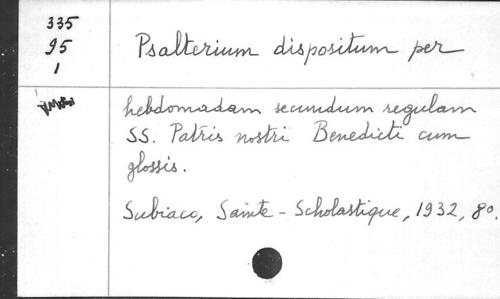 335
95
1
Psalterium dispositum per
hebdomadam secundum regulam
SS. Patris nostri Benedicti cum
glossis.
Subiaco, Sainte-Scholastique, 1932, 8o.